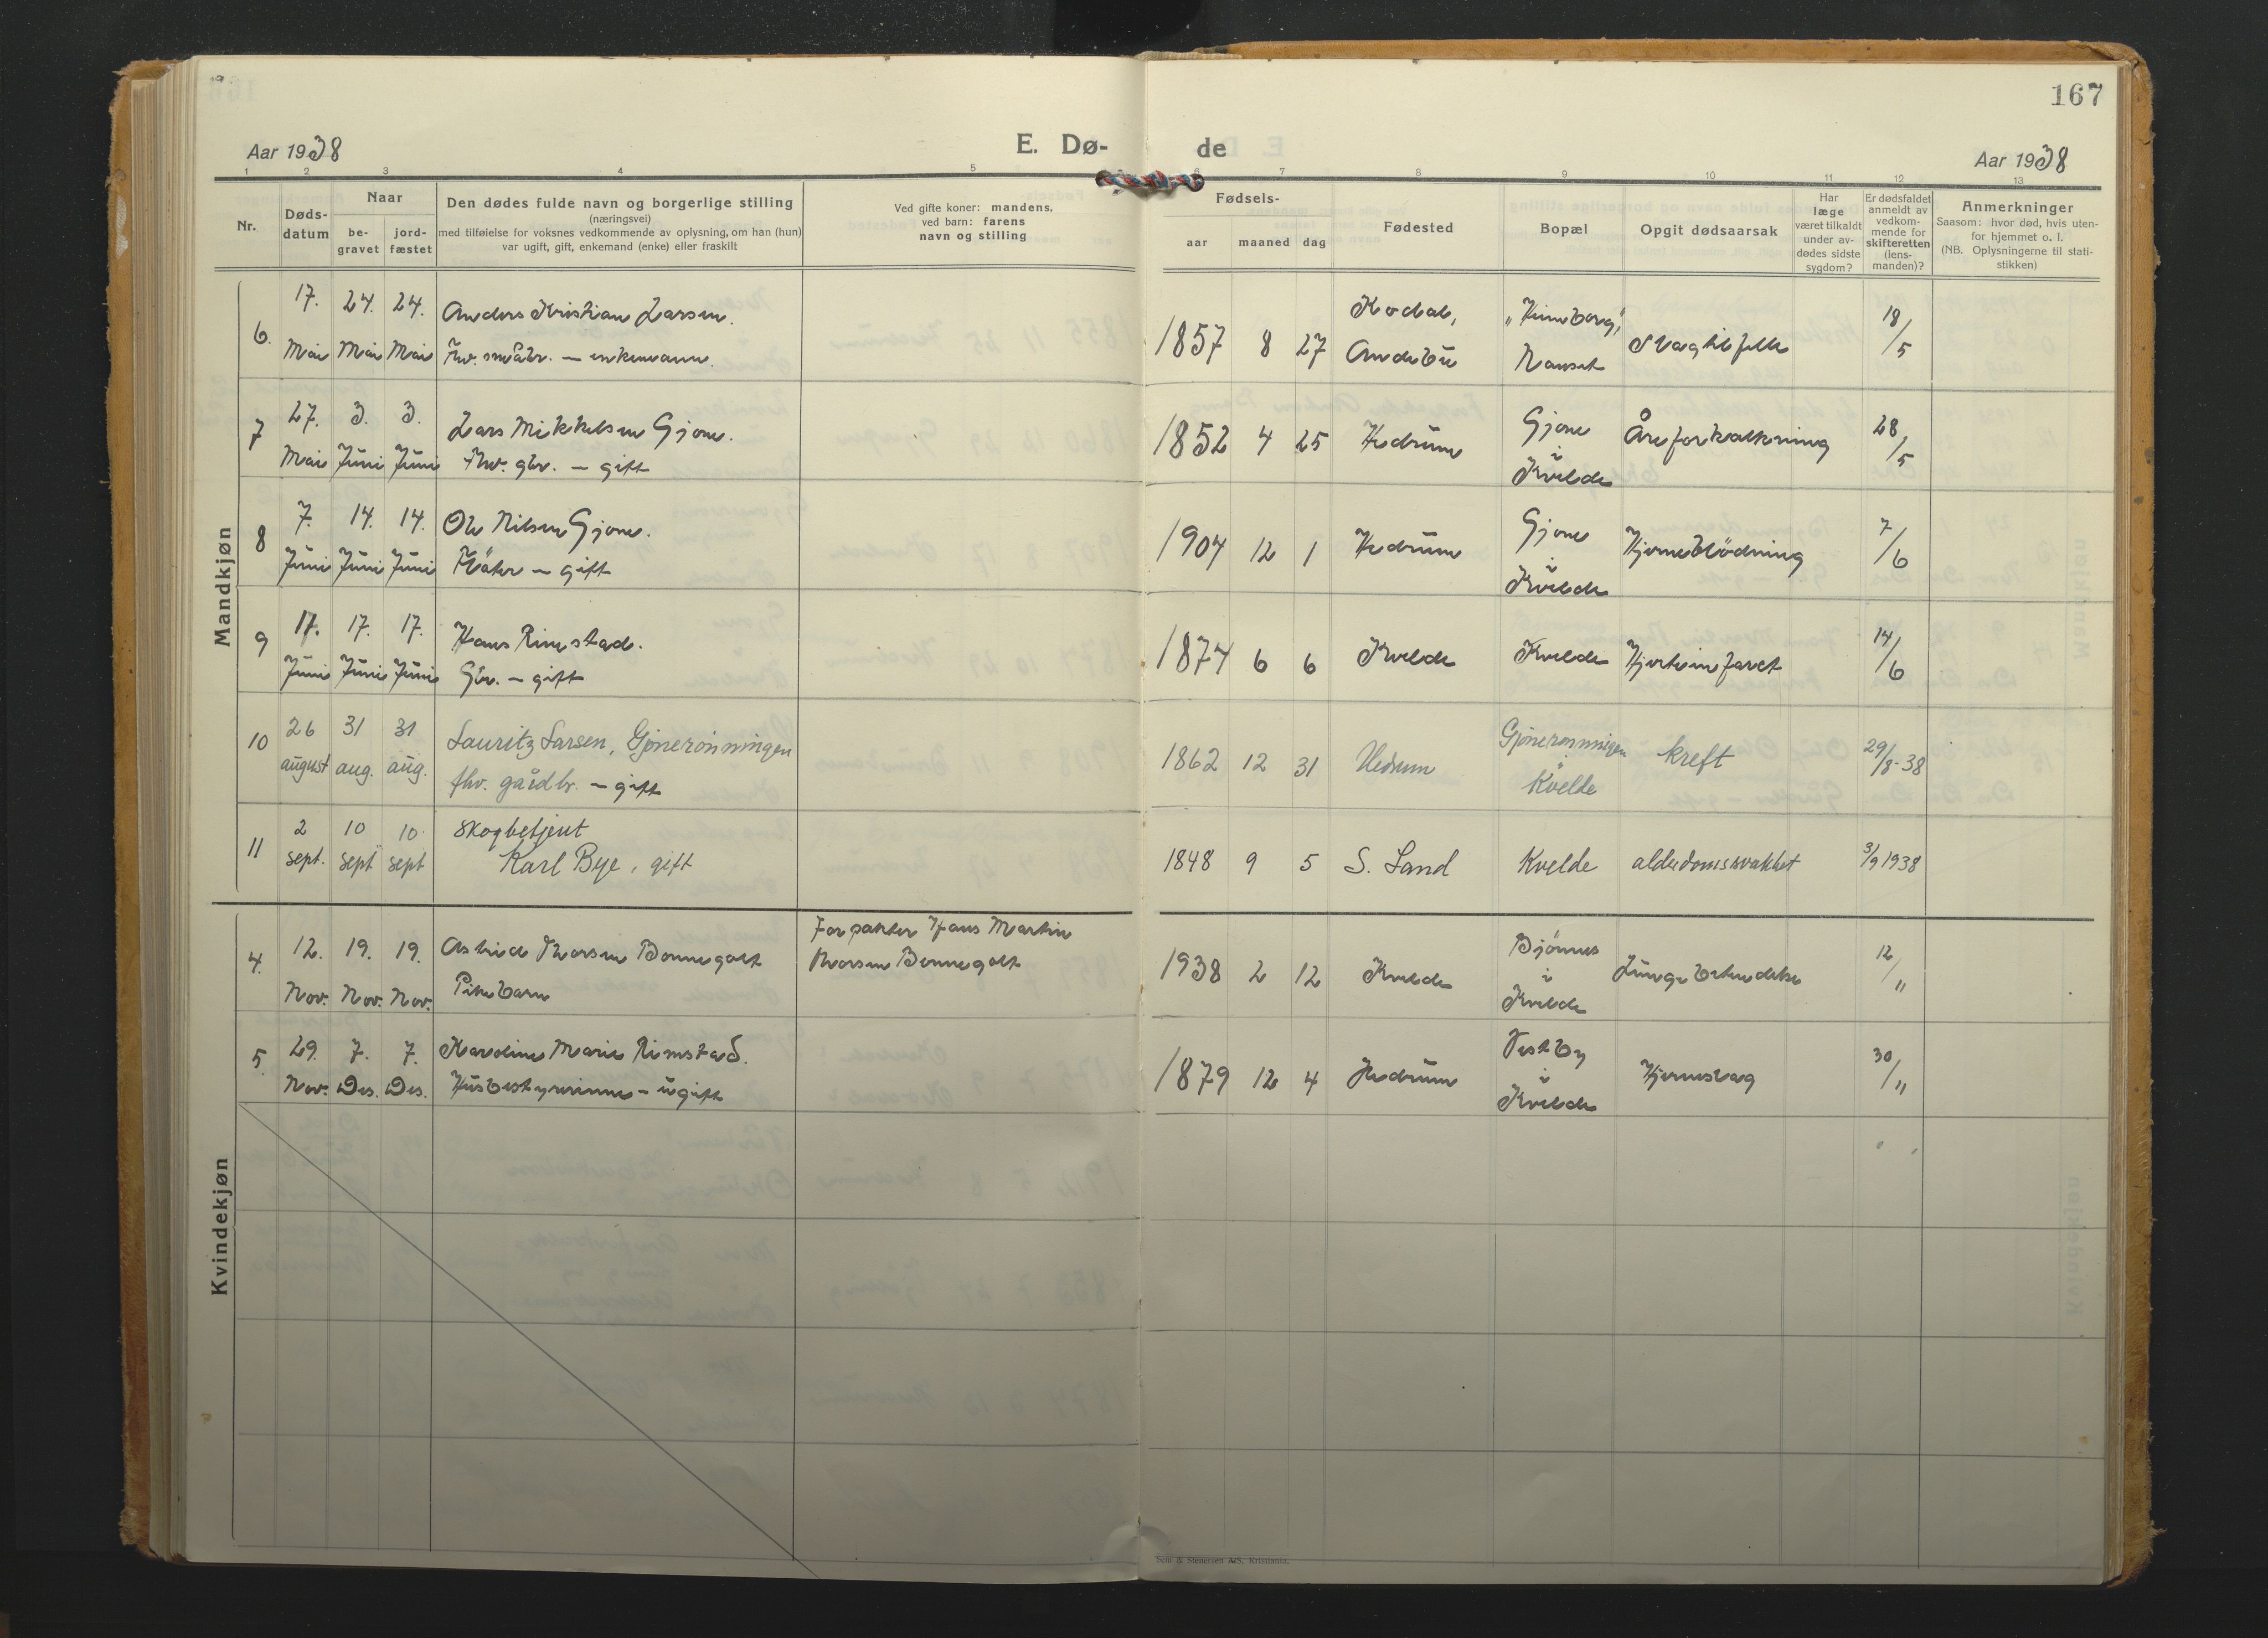 167
Aar 1938
E. Dø-
de
Aar 1938
1 2 3 4 5 6 7 8 9 10 11 12 13
Nr.
Døds-
datum
Naar
be-
gravet
jord-
fæstet
Den dødes fulde navn og borgerlige stilling
(næringsvei)
med tilføielse for voksnes vedkommende av oplysning, om han (hun)
var ugift, gift, enkemand (enke) eller fraskilt
Ved gifte koner: mandens,
ved barn: farens
navn og stilling
Fødsels-
aar maaned dag
Fødested
Bopæl
Opgit dødsaarsak
Har
læge
været tilkaldt
under av-
dødes sidste
sygdom?
Er dødsfaldet
anmeldt av
vedkom-
mende for
skifteretten
(lens-
manden)?
Anmerkninger
Saasom: hvor død, hvis uten-
for hjemmet o. l.
(NB. Oplysningerne til stati-
stikken)
Mandkjøn
6. 17. Mai 24. Mai 24. Mai
Anders Kristian Larsen.
Fhv. småbr. – enkemann.
1857 8 27
Kodal,
Andebu
Nanset
18/5
7 27. Mai 3. Juni 3. Juni
Lars Mikkelsen Gjone.
Fhv. gbr. – gift
1852 4 25 Hedrum
Gjone
i
Kvelde
Åreforkalkning
28/5
8 7. Juni 14. Juni 14. Juni
Ole Nilsen Gjone.
Fløter – gift
1904 12 1 Hedrum
Gjone
i
Kvelde
Hjerneblødning
7/6
9 17. Juni 17. Juni 17. Juni
Hans Rimstad.
Gbr. – gift
1874 6 6 Kvelde Kvelde Hjerteinfarct
14/6
10 26 august 31 aug. 31 aug.
Lauritz Larsen, Gjonerønningen
fhv. gårdbr. – gift
1862 12 31 Hedrum
Gjonerønningen
i
Kvelde
kreft
29/8-38
11 2 sept. 10 sept 10 sept
Skogbetjent
Karl Bye, gift
1848 9 5 S. Land Kvelde alderdomssvakhet 3/9 1938
Kvindekjøn
4. 12. Nov. 19. Nov. 19. Nov.
Astrid Thorsen Bonnegolt
Pikebarn
Forpakter Hans Martin
Thorsen Bonnegolt
1938 2 12 Kvelde
Bjønnes
i
Kvelde
Lungebetendelse
12/11
5 29. Nov. 7. Des. 7. Des.
Karoline Marie Rimstad.
Husbestyrerinne – ugift
1879 12 4 Hedrum
Vestby
i
Kvelde
Hjerneslag
30/11
Sem & Stenersen A/S, Kristiania.